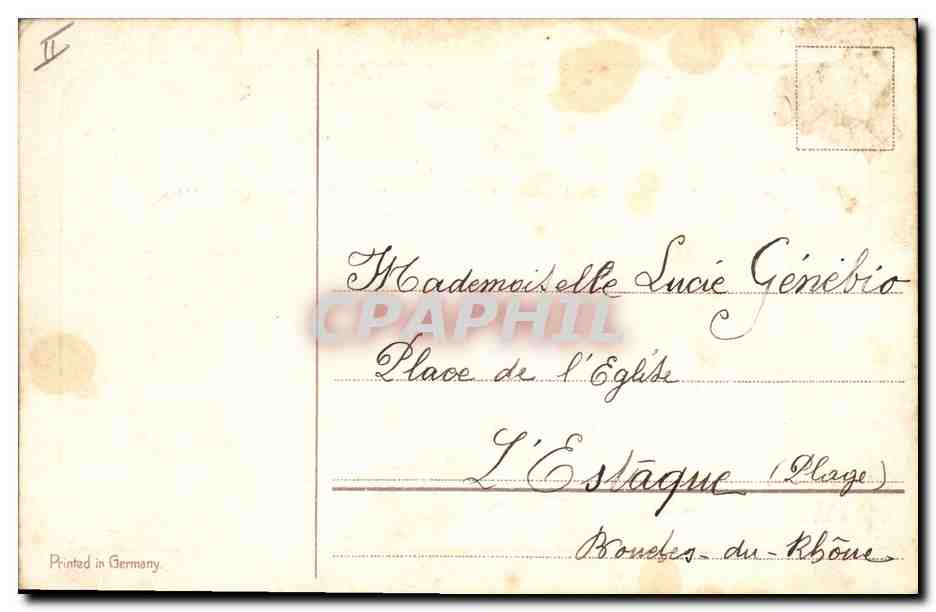 II
Mademoiselle Lucie Génébio
CPAPHIL
Place de l'Eglise
L'Estaque (Plage)
Bouches-du-Rhône.
Printed in Germany.